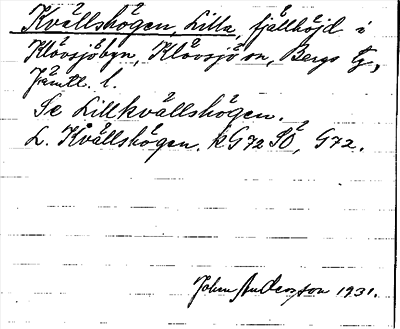 Kvällshögen, Lilla, fjällhöjd i
Klövsjöbyn, Klövsjö sn, Bergs tg,
Jämtl. l.
Se Lillkvällshögen.
L. Kvällshögen. kG72 SÖ, G72.
John Andersson 1931.